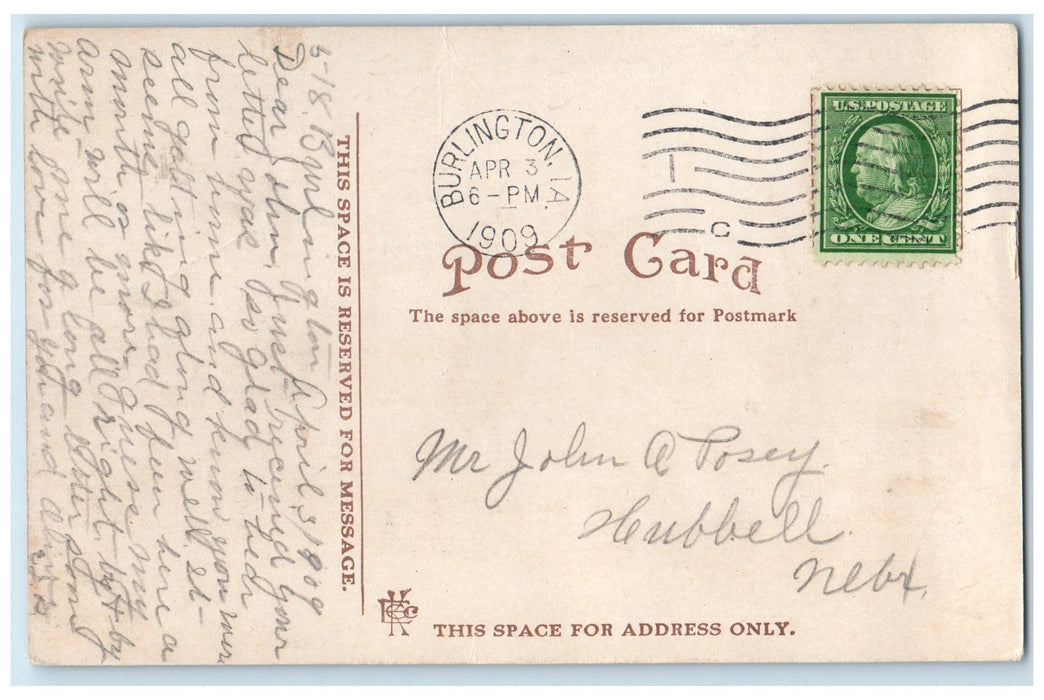 BURLINGTON, IA.
APR 3
6-PM
1909
U.S. POSTAGE
ONE CENT
Post Card
The space above is reserved for Postmark
THIS SPACE IS RESERVED FOR MESSAGE.
5-18 Burlington April 3 1909
Dear John, Just recived your
letter was so glad to hear
from you and know you were
all getting along well. It
seems like I had been here a
month or more. I guess my
arm will be all right by & by
write me a long letter soon
with love for you and all
Mr John A Posey.
Hubbell.
Nebr.
THIS SPACE FOR ADDRESS ONLY.